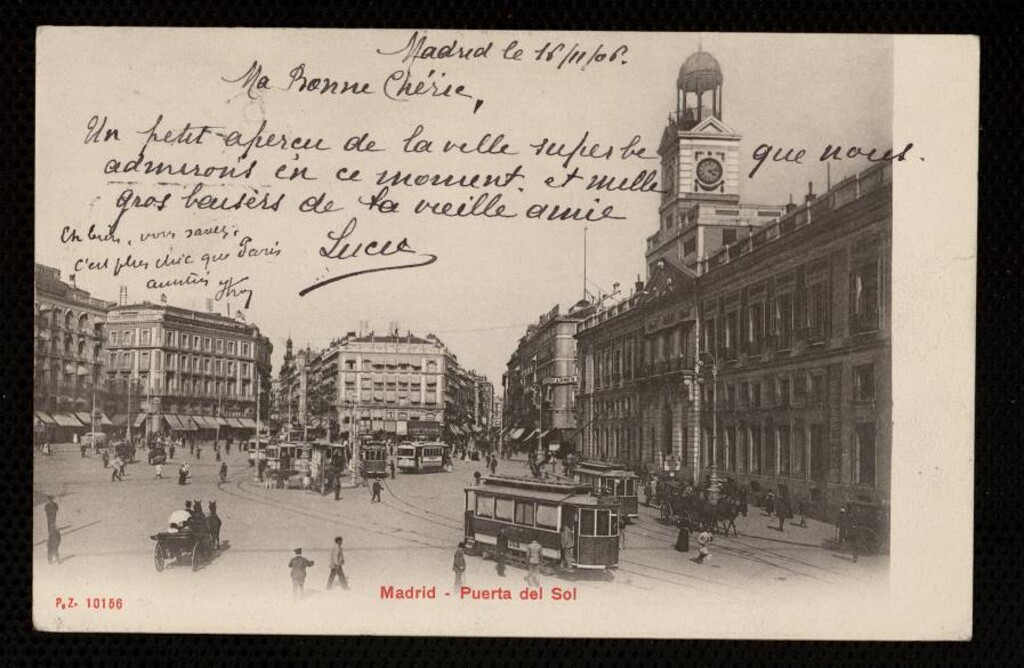 Madrid le 16/11/06.
Ma Bonne Chérie,
Un petit aperçu de la ville superbe que nous
admirons en ce moment. et mille
gros baisers de ta vieille amie
Lucie
Eh bien, vous savez,
c'est plus chic que Paris
Madrid - Puerta del Sol
P.Z. 10156